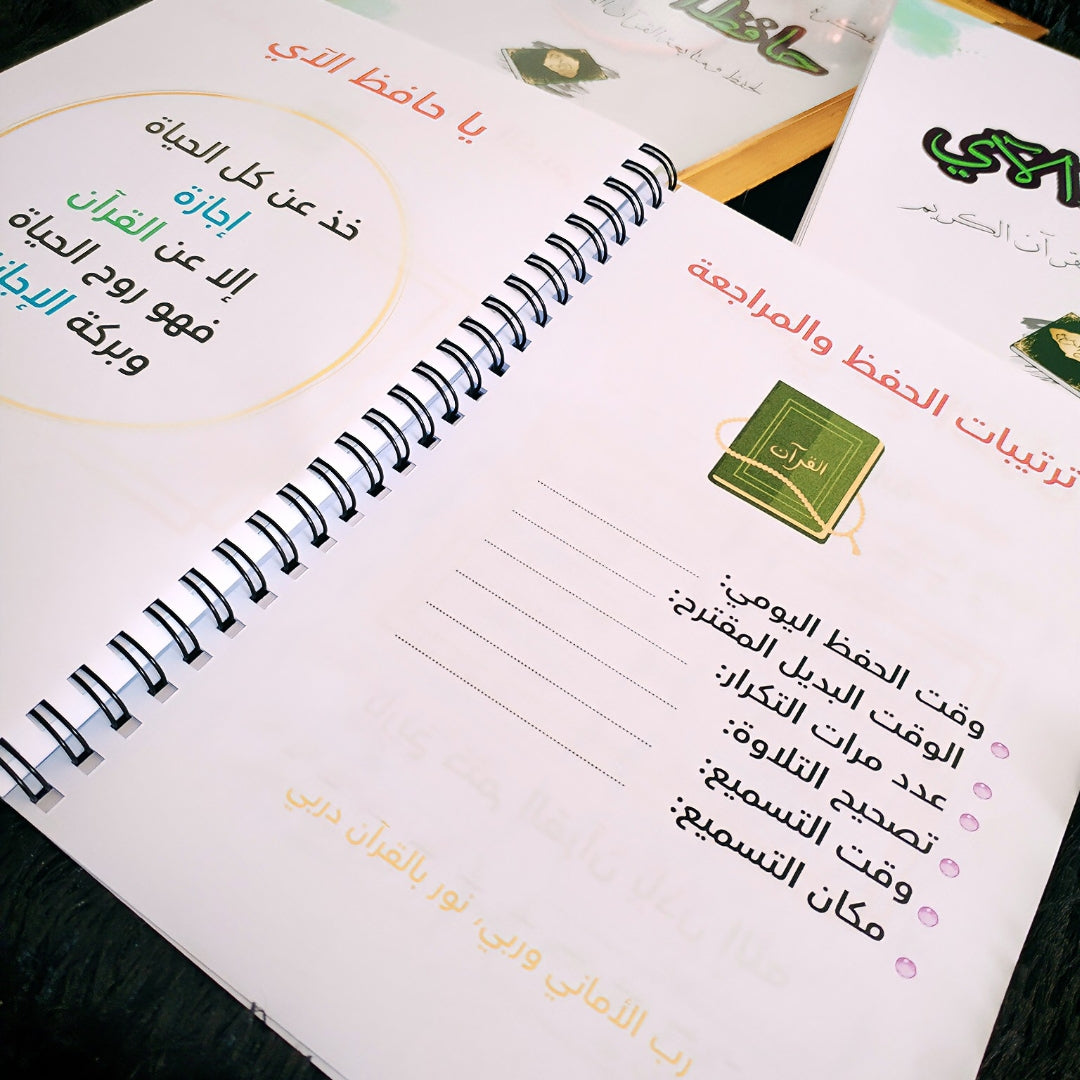 ترتيبات الحفظ والمراجعة
القرآن
وقت الحفظ اليومي:
الوقت البديل المقترح:
عدد مرات التكرار:
تصحيح التلاوة:
وقت التسميع:
مكان التسميع:
رب الأماني وربي، نور بالقرآن دربي
يا حافظ الآي
خذ عن كل الحياة
إجازة
إلا عن القرآن
فهو روح الحياة
وبركة
حافظ
الآي
القرآن الكريم